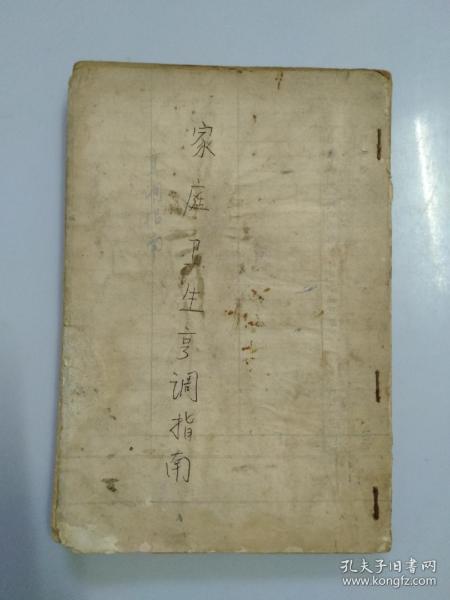 家庭卫生亨调指南
孔夫子旧书网
www.kongfz.com